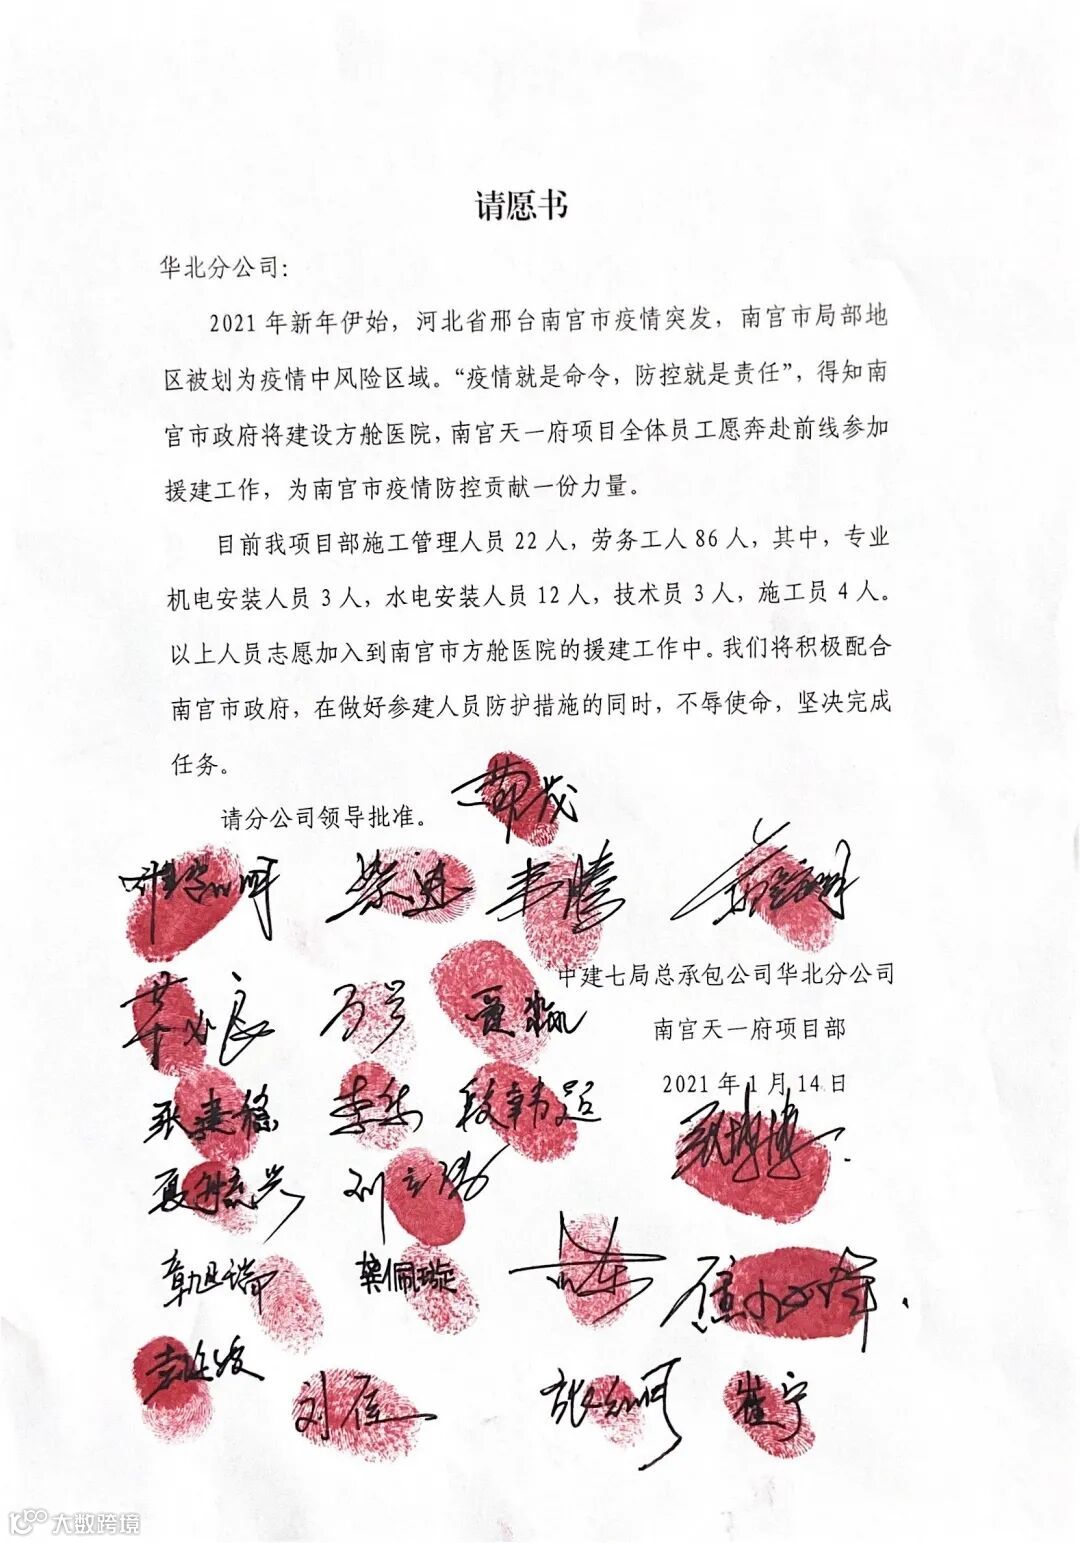 请愿书
华北分公司：
2021年新年伊始，河北省邢台南宫市疫情突发，南宫市局部地
区被划为疫情中风险区域。“疫情就是命令，防控就是责任”，得知南
宫市政府将建设方舱医院，南宫天一府项目全体员工愿奔赴前线参加
援建工作，为南宫市疫情防控贡献一份力量。
目前我项目部施工管理人员22人，劳务工人86人，其中，专业
机电安装人员3人，水电安装人员12人，技术员3人，施工员4人。
以上人员志愿加入到南宫市方舱医院的援建工作中。我们将积极配合
南宫市政府，在做好参建人员防护措施的同时，不辱使命，坚决完成
任务。
请分公司领导批准。
中建七局总承包公司华北分公司
南宫天一府项目部
2021年1月14日
段韩超
章旭瑞
龚佩璇
刘佳
崔宁
大数跨境